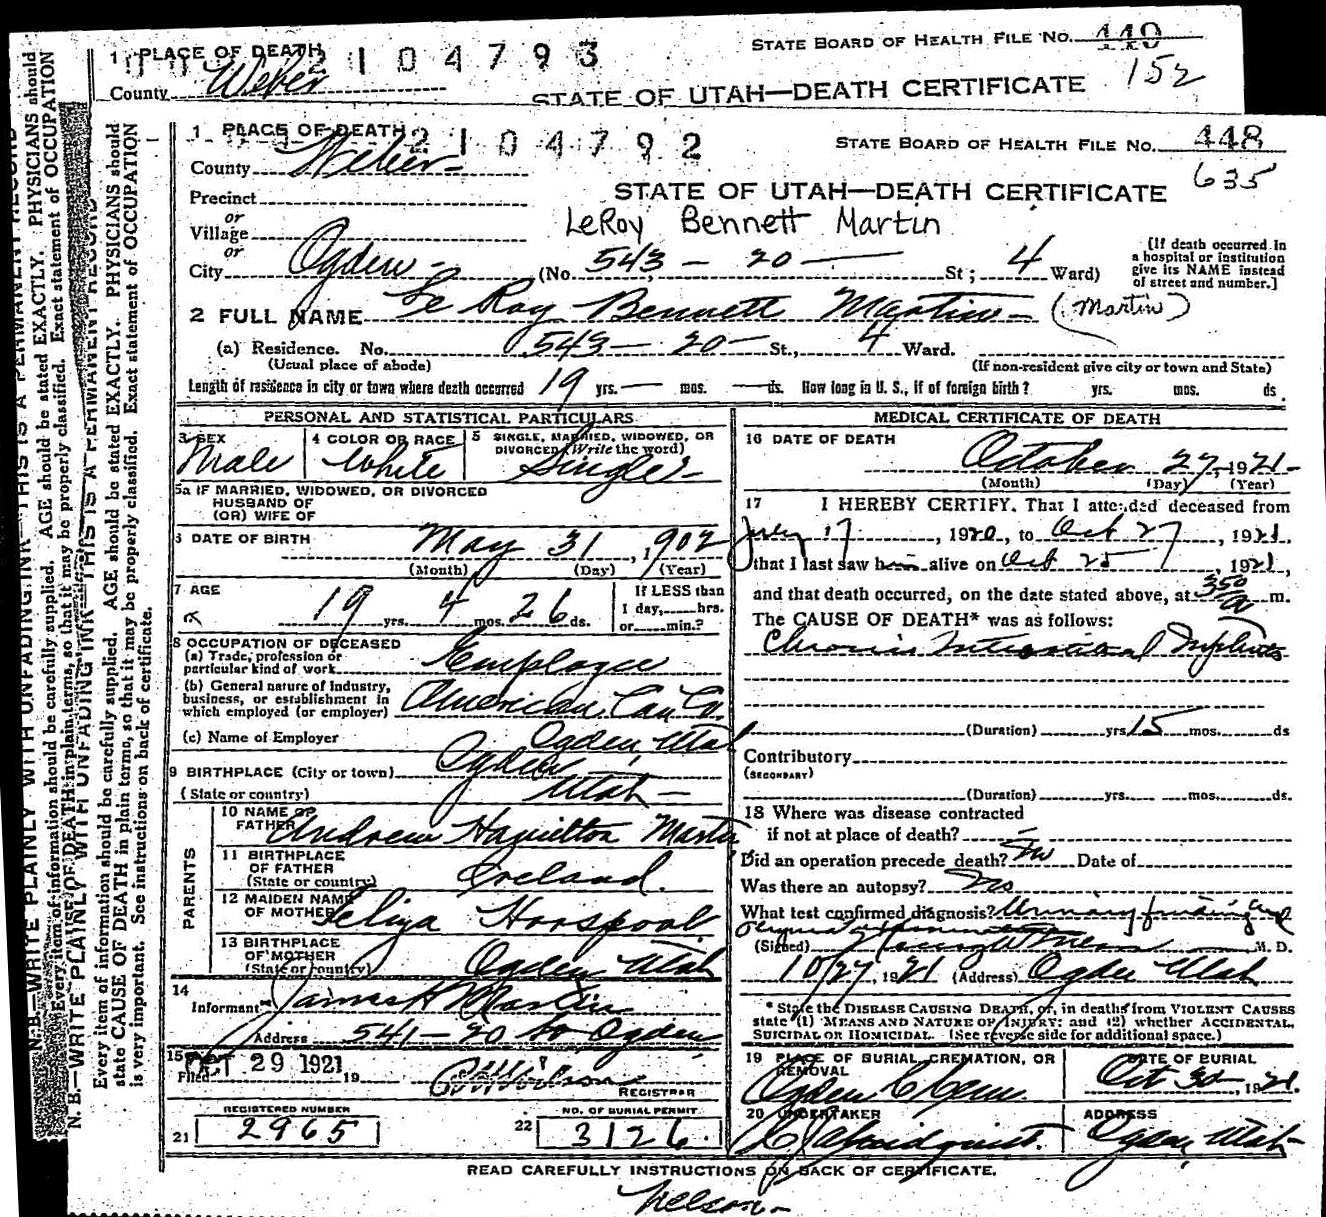 1 PLACE OF DEATH
2104793
STATE BOARD OF HEALTH FILE NO. 449
152
County Weber
STATE OF UTAH—DEATH CERTIFICATE
1 PLACE OF DEATH
2104792
STATE BOARD OF HEALTH FILE NO. 448
635
County Weber
STATE OF UTAH—DEATH CERTIFICATE
Precinct
or
Village
LeRoy Bennett Martin
or
City Ogden (No. 543 - 20 St; 4 Ward)
[If death occurred in a hospital or institution give its NAME instead of street and number.]
2 FULL NAME Le Roy Bennett Martin (Martin)
(a) Residence. No. 543 - 20 - St., 4 Ward.
(Usual place of abode) (If non-resident give city or town and State)
Length of residence in city or town where death occurred 19 yrs. — mos. — ds. How long in U. S., if of foreign birth? yrs. mos. ds.
PERSONAL AND STATISTICAL PARTICULARS
3 SEX Male
4 COLOR OR RACE White
5 SINGLE, MARRIED, WIDOWED, OR DIVORCED (Write the word) Single
5a IF MARRIED, WIDOWED, OR DIVORCED
HUSBAND OF
(OR) WIFE OF
6 DATE OF BIRTH May 31, 1902
(Month) (Day) (Year)
7 AGE 19 yrs. 4 mos. 26 ds.
If LESS than 1 day, hrs. or min.?
8 OCCUPATION OF DECEASED
(a) Trade, profession or particular kind of work Employee
(b) General nature of Industry, business, or establishment in which employed (or employer) American Can Co.
(c) Name of Employer Ogden, Utah
9 BIRTHPLACE (City or town) Ogden
(State or country) Utah —
PARENTS
10 NAME OF FATHER Andrew Hamilton Martin
11 BIRTHPLACE OF FATHER (State or country) Ireland.
12 MAIDEN NAME OF MOTHER Eliza Horspool
13 BIRTHPLACE OF MOTHER (State or country) Ogden Utah
14 Informant James H Martin
Address 541 - 20 St Ogden
15 Filed OCT 29 1921 19
REGISTRAR
REGISTERED NUMBER
21 2965
NO. OF BURIAL PERMIT
22 3126.
MEDICAL CERTIFICATE OF DEATH
16 DATE OF DEATH
October 27, 1921
(Month) (Day) (Year)
17 I HEREBY CERTIFY. That I attended deceased from
July 17, 1920, to Oct 27, 1921
that I last saw him alive on Oct 25, 1921,
and that death occurred, on the date stated above, at 350 a m.
The CAUSE OF DEATH* was as follows:
Chronic Interstitial Nephritis
(Duration) yrs 15 mos. ds
Contributory
(SECONDARY)
(Duration) yrs. mos. ds.
18 Where was disease contracted
if not at place of death? —
Did an operation precede death? No Date of
Was there an autopsy? No
What test confirmed diagnosis? Urinary findings and
(Signed) M. D.
10/27, 1921 (Address) Ogden Utah
* State the DISEASE CAUSING DEATH, or, in deaths from VIOLENT CAUSES
state (1) MEANS AND NATURE OF INJURY: and (2) whether ACCIDENTAL,
SUICIDAL OR HOMICIDAL. (See reverse side for additional space.)
19 PLACE OF BURIAL, CREMATION, OR REMOVAL Ogden C Cem.
DATE OF BURIAL Oct 30, 1921.
20 UNDERTAKER
ADDRESS Ogden, Utah
READ CAREFULLY INSTRUCTIONS ON BACK OF CERTIFICATE.
Nelson —
N. B.—WRITE PLAINLY WITH UNFADING INK—THIS IS A PERMANENT RECORD
Every item of information should be carefully supplied. AGE should be stated EXACTLY. PHYSICIANS should
state CAUSE OF DEATH in plain terms, so that it may be properly classified. Exact statement of OCCUPATION
is very important. See instructions on back of certificate.